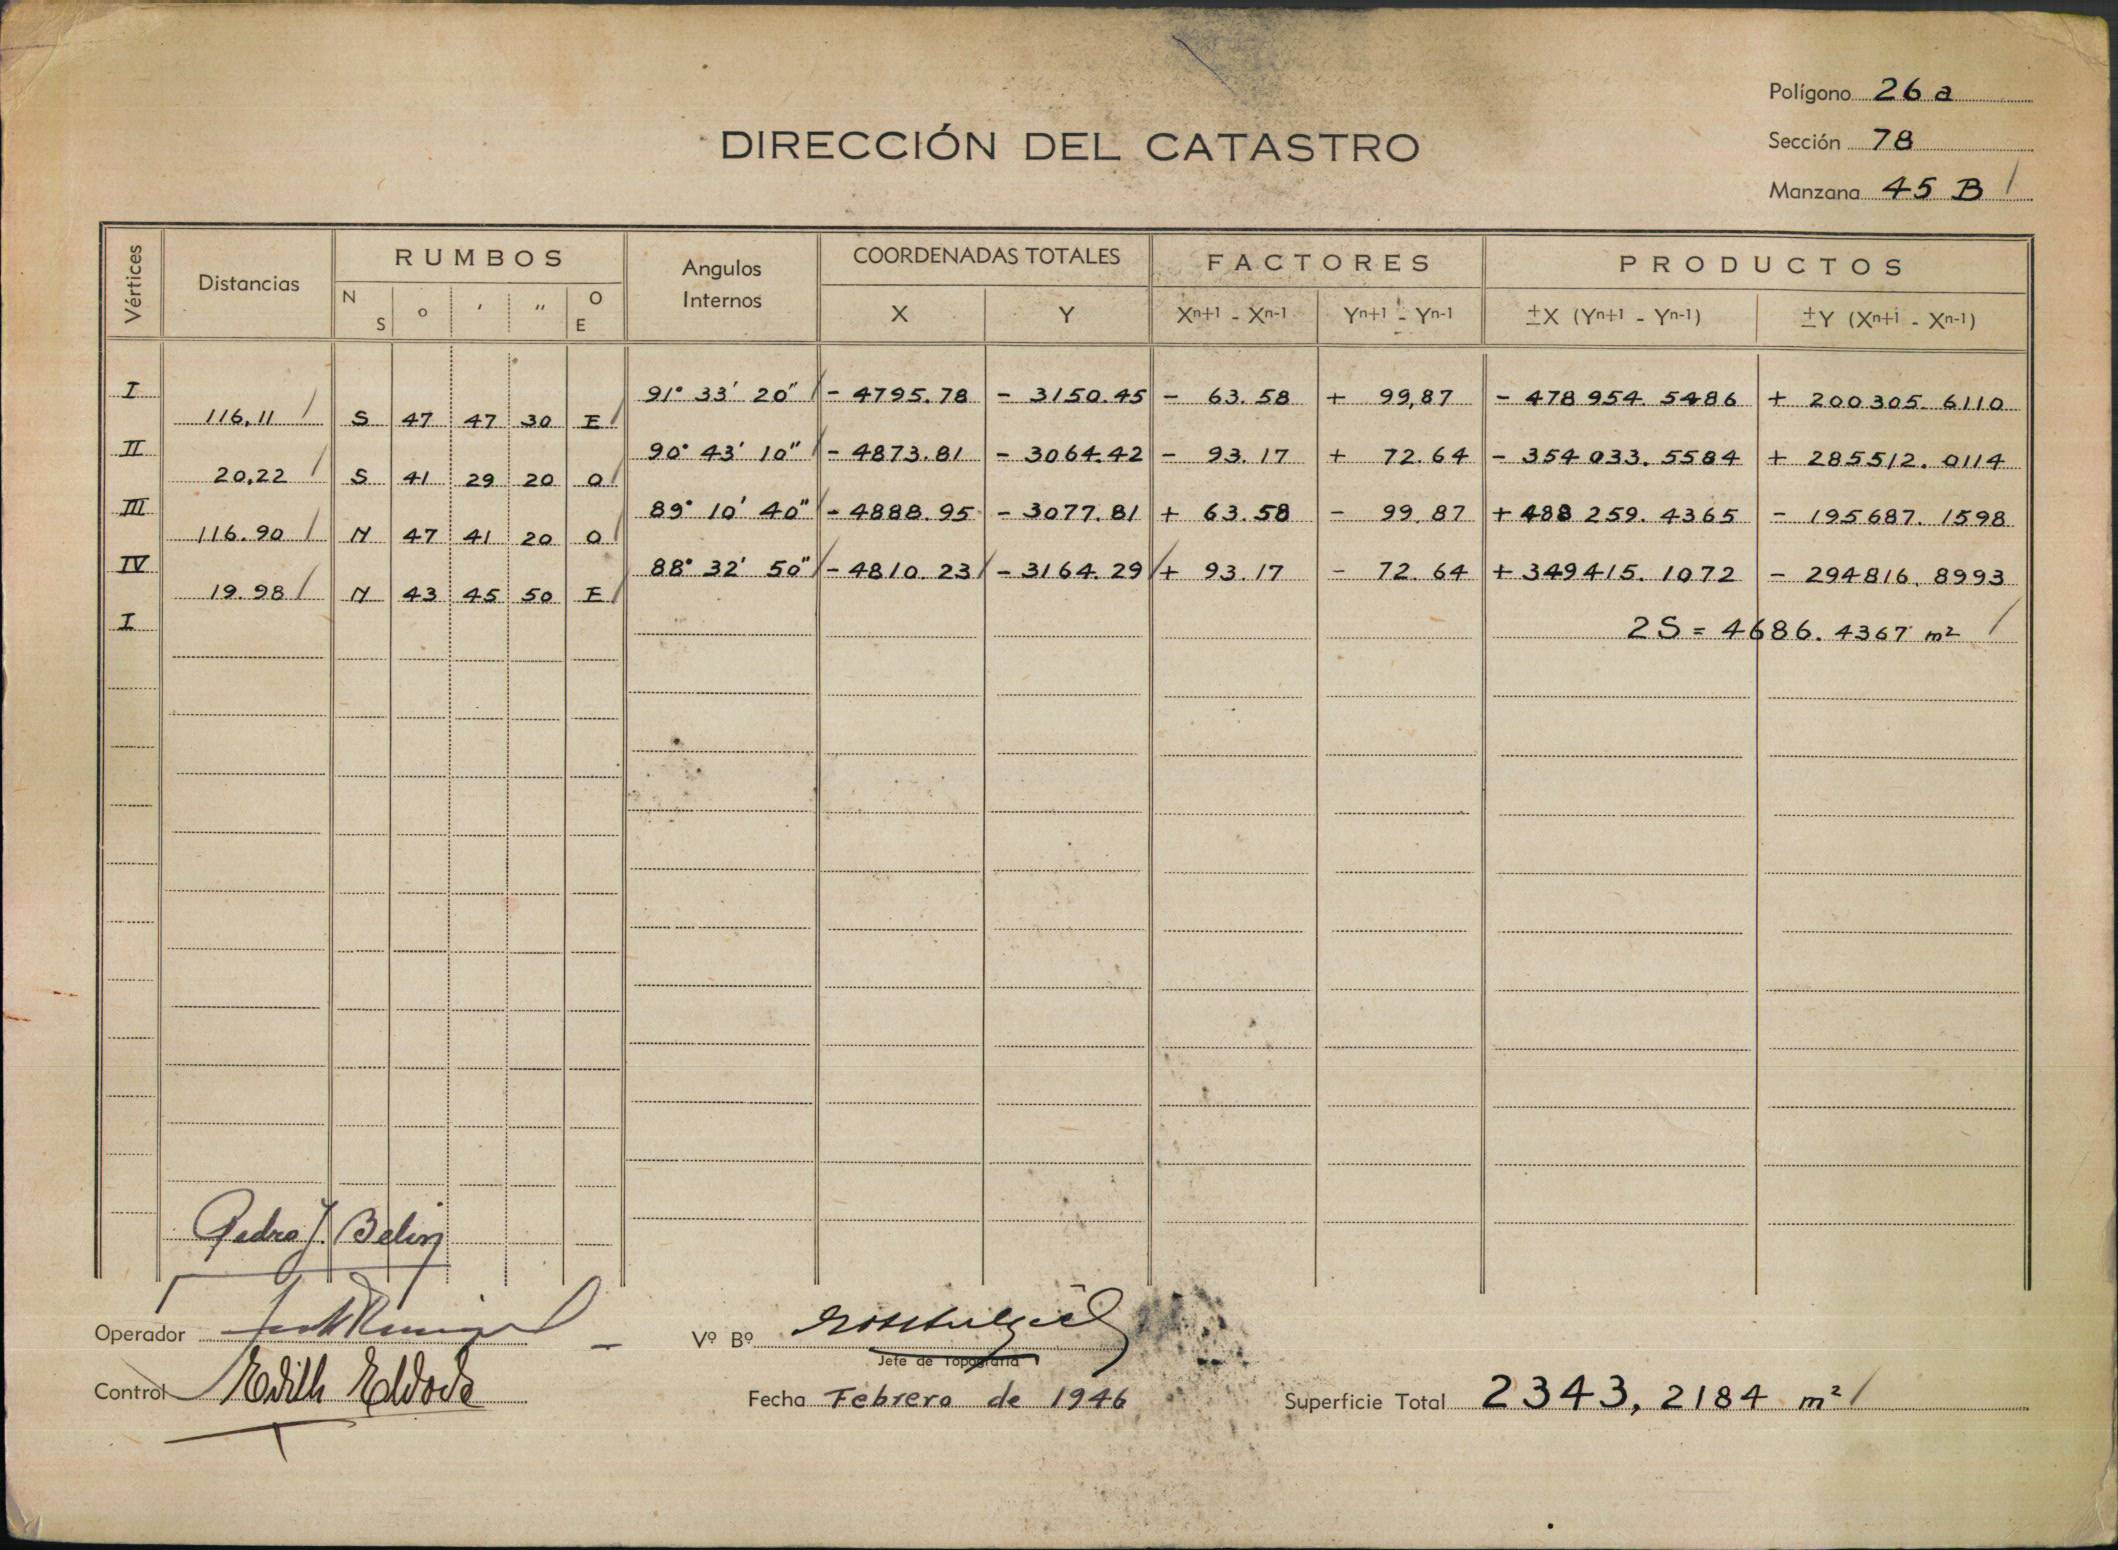 Polígono 26 a
DIRECCIÓN DEL CATASTRO
Sección 78
Manzana 45 B /
Vértices Distancias RUMBOS Angulos Internos COORDENADAS TOTALES FACTORES PRODUCTOS
N S o ' " O E X Y Xn+1 - Xn-1 Yn+1 - Yn-1 ±X (Yn+1 - Yn-1) ±Y (Xn+1 - Xn-1)
I 91° 33' 20" - 4795.78 - 3150.45 - 63.58 + 99,87 - 478 954. 5486 + 200305. 6110
116,11 S 47 47 30 E
II 90° 43' 10" - 4873.81 - 3064.42 - 93.17 + 72.64 - 354 033. 5584 + 285512. 0114
20,22 S 41 29 20 O
III 89° 10' 40" - 4888.95 - 3077.81 + 63.58 - 99.87 + 488 259. 4365 - 195687. 1598
116.90 N 47 41 20 O
IV 88° 32' 50" - 4810.23 - 3164.29 + 93.17 - 72.64 + 349415. 1072 - 294816. 8993
19.98 N 43 45 50 E
I 2S = 4686. 4367 m²
Pedro J. Belin
Operador
Vº Bº
Jefe de Topografía
Control Edith
Fecha Febrero de 1946
Superficie Total 2343, 2184 m²